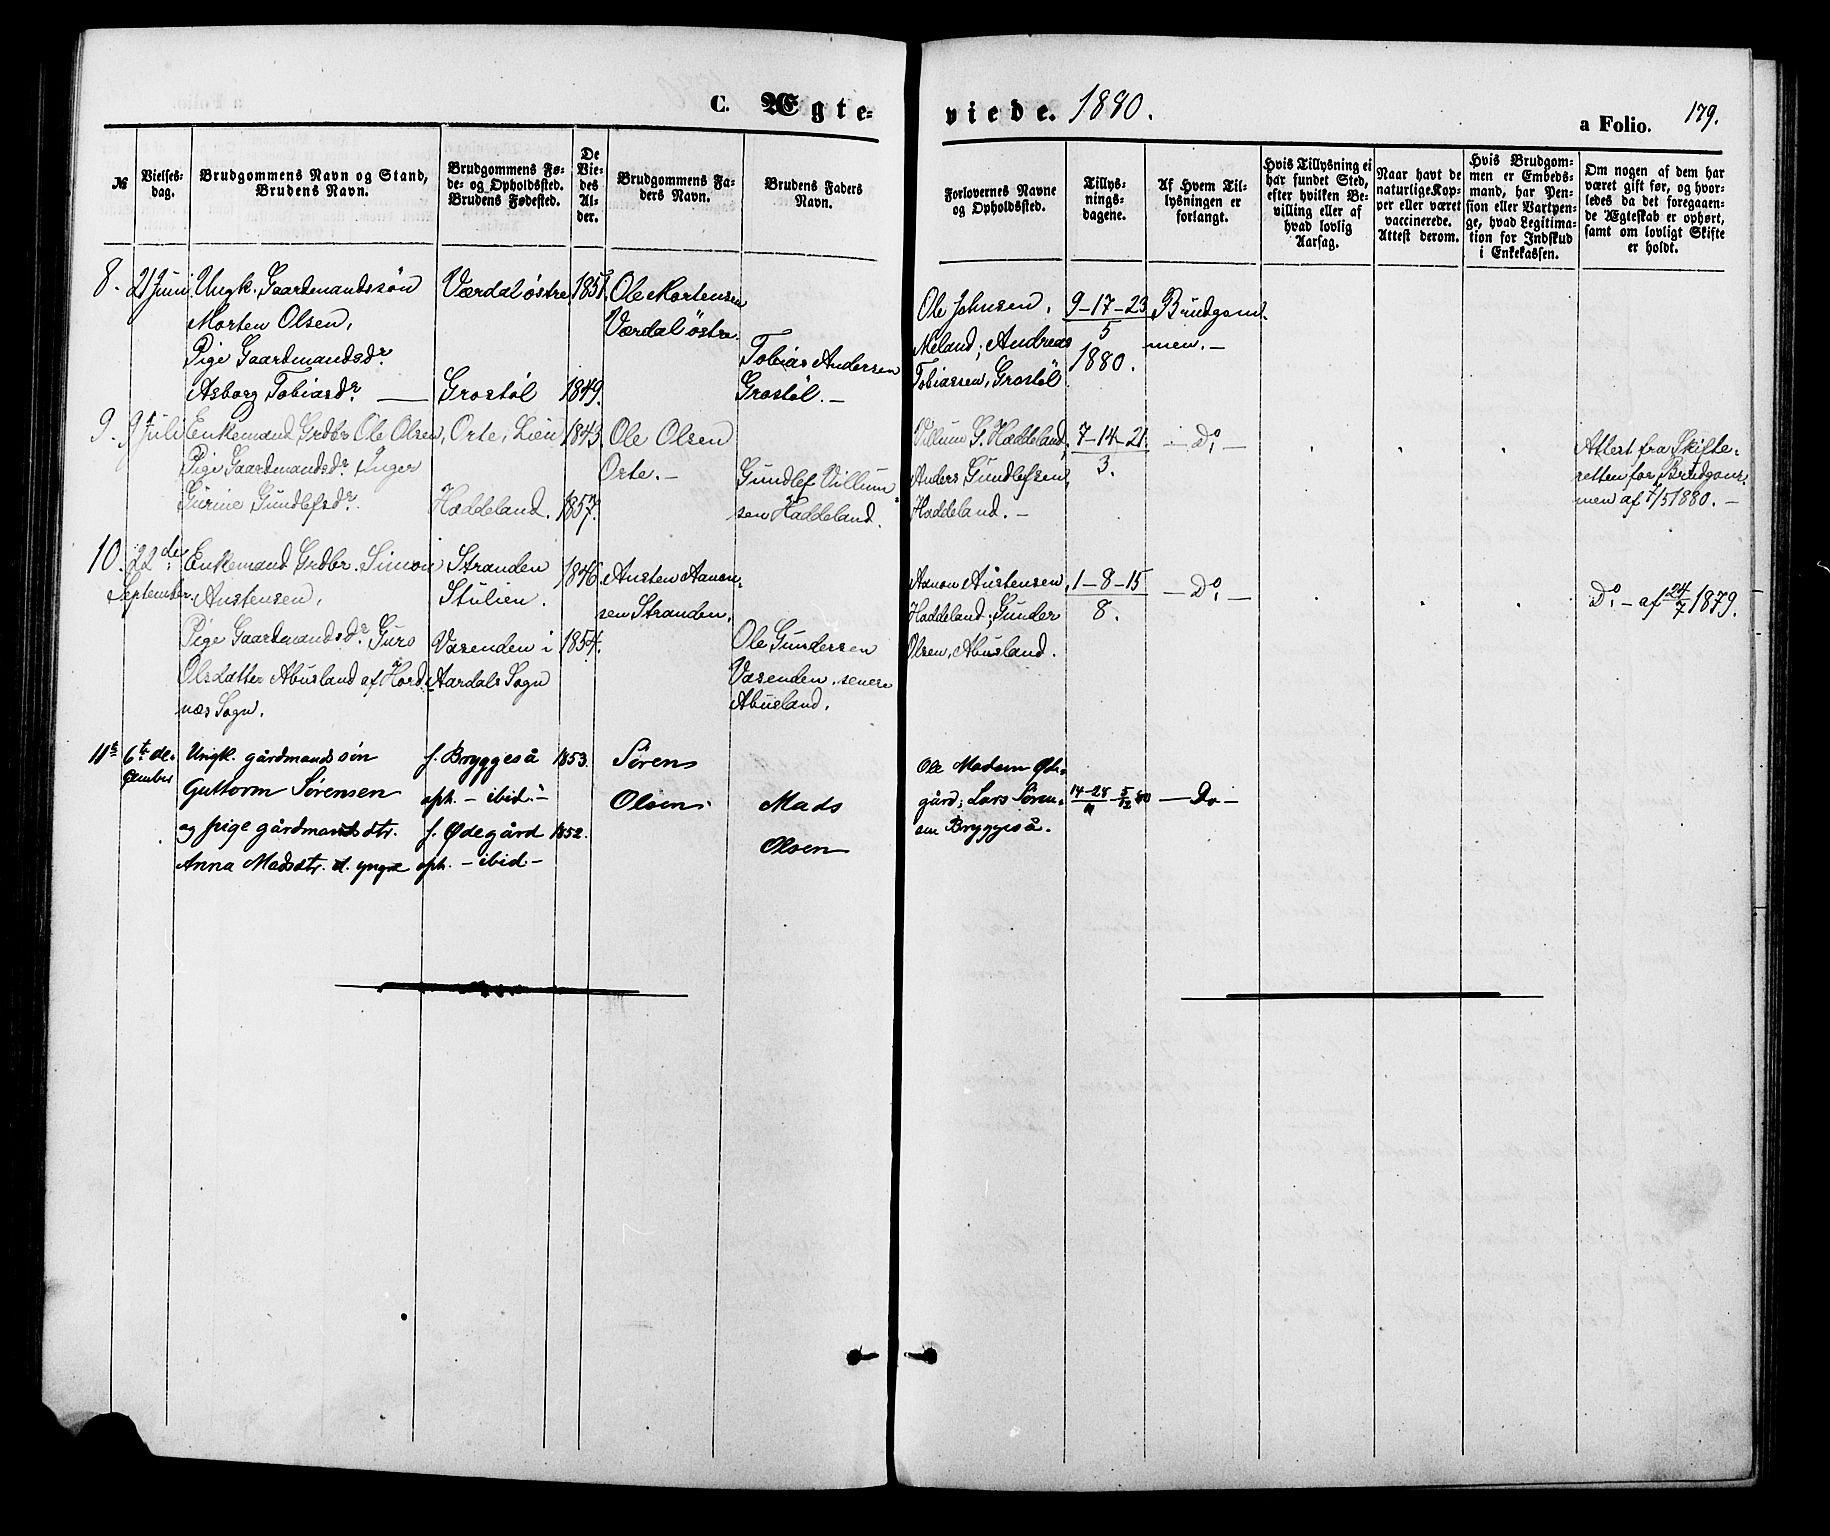 C. Ægte- viede. 1880.
a Folio. 179.
№
Vielses-
dag.
Brudgommens Navn og Stand,
Brudens Navn.
Brudgommens Fø-
de- og Opholdssted.
Brudens Fødested.
De
Vie-
des
Al-
der.
Brudgommens Fa-
ders Navn.
Brudens Faders
Navn.
Forlovernes Navne
og Opholdssted.
Tillys-
nings-
dagene.
Af Hvem Til-
lysningen er
forlangt.
Hvis Tillysning ei
har fundet Sted,
efter hvilken Be-
villing eller af
hvad lovlig
Aarsag.
Naar havt de
naturlige Kop-
per eller været
vaccinerede.
Attest derom.
Hvis Brudgom-
men er Embeds-
mand, har Pen-
sion eller Vartpen-
ge, hvad Legitima-
tion for Indskud
i Enkekassen.
Om nogen af dem har
været gift før, og hvor-
ledes da det foregaaen-
de Ægteskab er ophørt,
samt om lovligt Skifte
er holdt.
8. 21 Juni
Ungk. Gaardmandssøn
Morten Olsen,
Pige Gaardmandsdr
Asborg Tobiasdr
Værdal østre
Grostøl
1851.
1849.
Ole Mortensen
Værdal østre
Tobias Andersen
Grostøl. —
Ole Johnsen,
Meland; Andreas
Tobiassen, Grostøl
9-17-23
5
1880.
Brudgom-
men. —
9. 9 Juli
Enkemand Grdbr Ole Olsen,
Pige Gaardmandsdr Inger
Gurine Gundlefsdr.
Orte, Lien
Haddeland.
1845
1857.
Ole Olsen
Orte. —
Gundlef Villum-
sen Haddeland.
Villum G. Haddeland,
Anders Gundlefsen,
Haddeland. —
7-14-21.
3.
— Do. —
Attest fra Skifte-
retten for Brudgom-
men af 1/5 1880. —
10. 22de
September
Enkemand Grdbr. Simon
Austensen,
Pige Gaardmandsdr. Guro
Olsdatter Abusland af Hord-
næs Sogn.
Stranden
Stulien.
Vasenden i
Aardals Sogn
1846.
1854.
Austen Aanon-
sen Stranden,
Ole Gundersen
Vasenden, senere
Abusland.
Aanon Austensen
Haddeland; Gunder
Olsen, Abusland.
1-8-15
8.
— Do. —
Do. — af 24/7 1879.
11te 6te de-
cember
Ungk. gårdmandssøn
Guttorm Sørensen
og pige gårdmandsdtr.
Anna Madsdtr. d. yngre
f. Bryggeså
oph. — ibid. —
f. Ødegård
oph. — ibid —
1853.
1852.
Søren
Olsen
Mads
Olsen
Ole Madsen Øde-
gård; Lars Søren-
sen Bryggeså.
14-28 5
11 12 80
— Do —